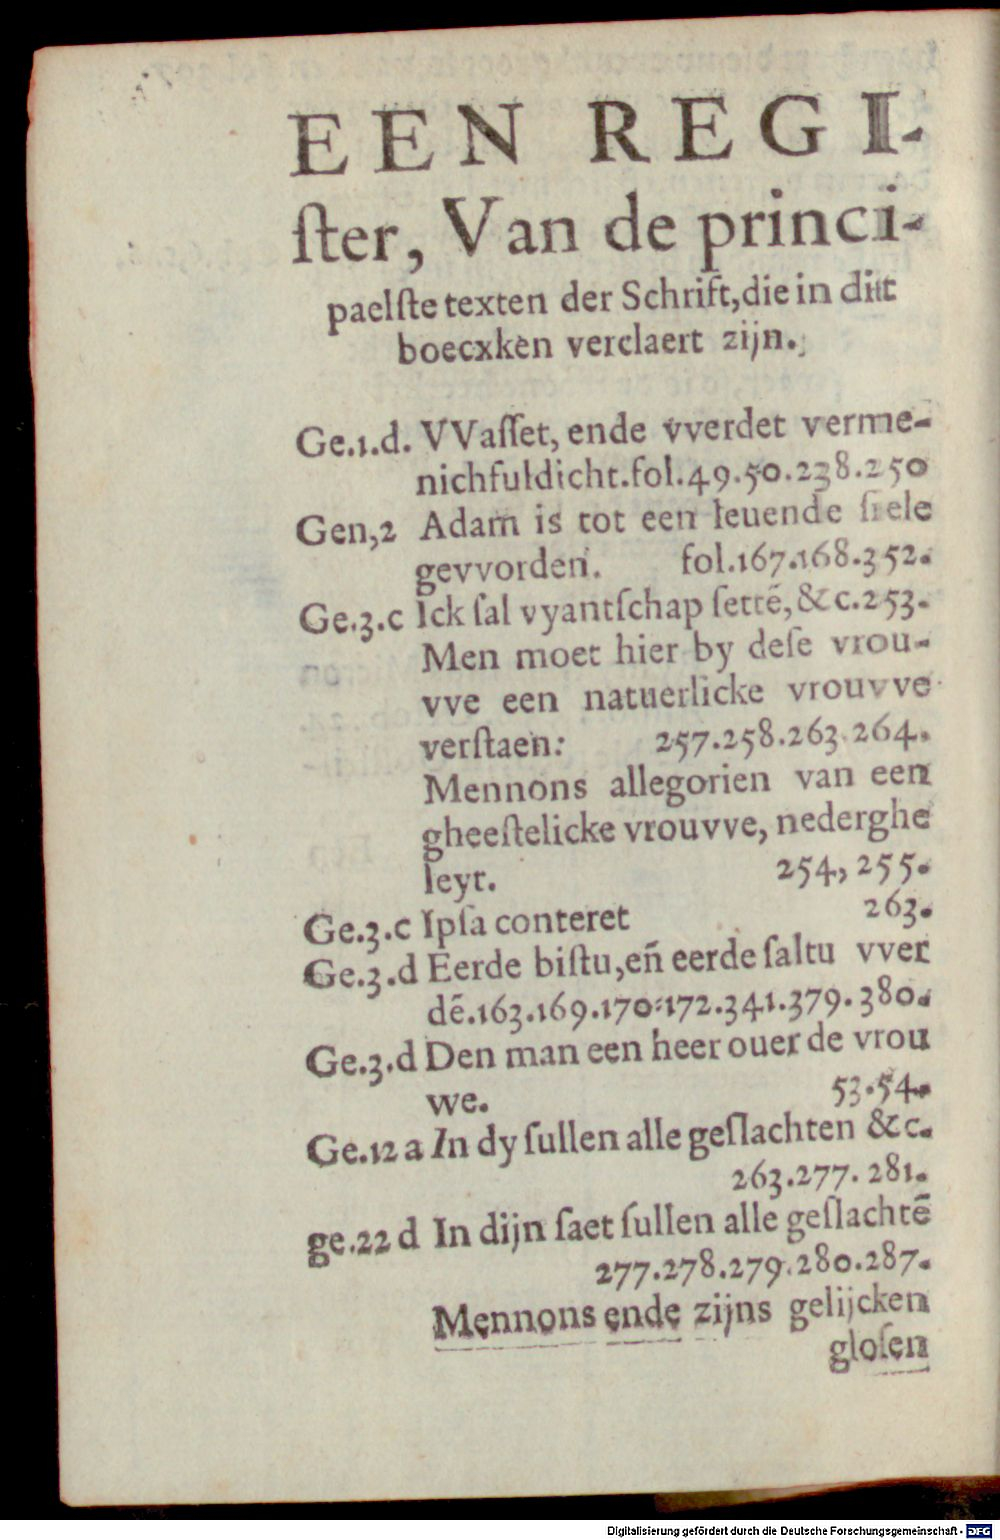 EEN REGI-
ſter, Van de princi-
paelſte texten der Schrift, die in dit
boecxken verclaert zijn.
Ge.1.d. VVaſſet, ende vverdet verme-
nichfuldicht.fol.49.50.238.250
Gen,2 Adam is tot een leuende ſiele
gevvorden. fol.167.168.352.
Ge.3.c Ick ſal vyantſchap ſettē, &c.253.
Men moet hier by deſe vrou-
vve een natuerlicke vrouvve
verſtaen: 257.258.263.264.
Mennons allegorien van een
gheeſtelicke vrouvve, nederghe
leyt. 254, 255.
Ge.3.c Ipſa conteret 263.
Ge.3.d Eerde biſtu,en̄ eerde ſaltu vver
dē.163.169.170.172.341.379.380.
Ge.3.d Den man een heer ouer de vrou
we. 53.54.
Ge.12 a In dy ſullen alle geſlachten &c.
263.277.281.
ge.22 d In dijn ſaet ſullen alle geſlachtē
277.278.279.280.287.
Mennons ende zijns gelijcken
gloſen
Digitalisierung gefördert durch die Deutsche Forschungsgemeinschaft - DFG